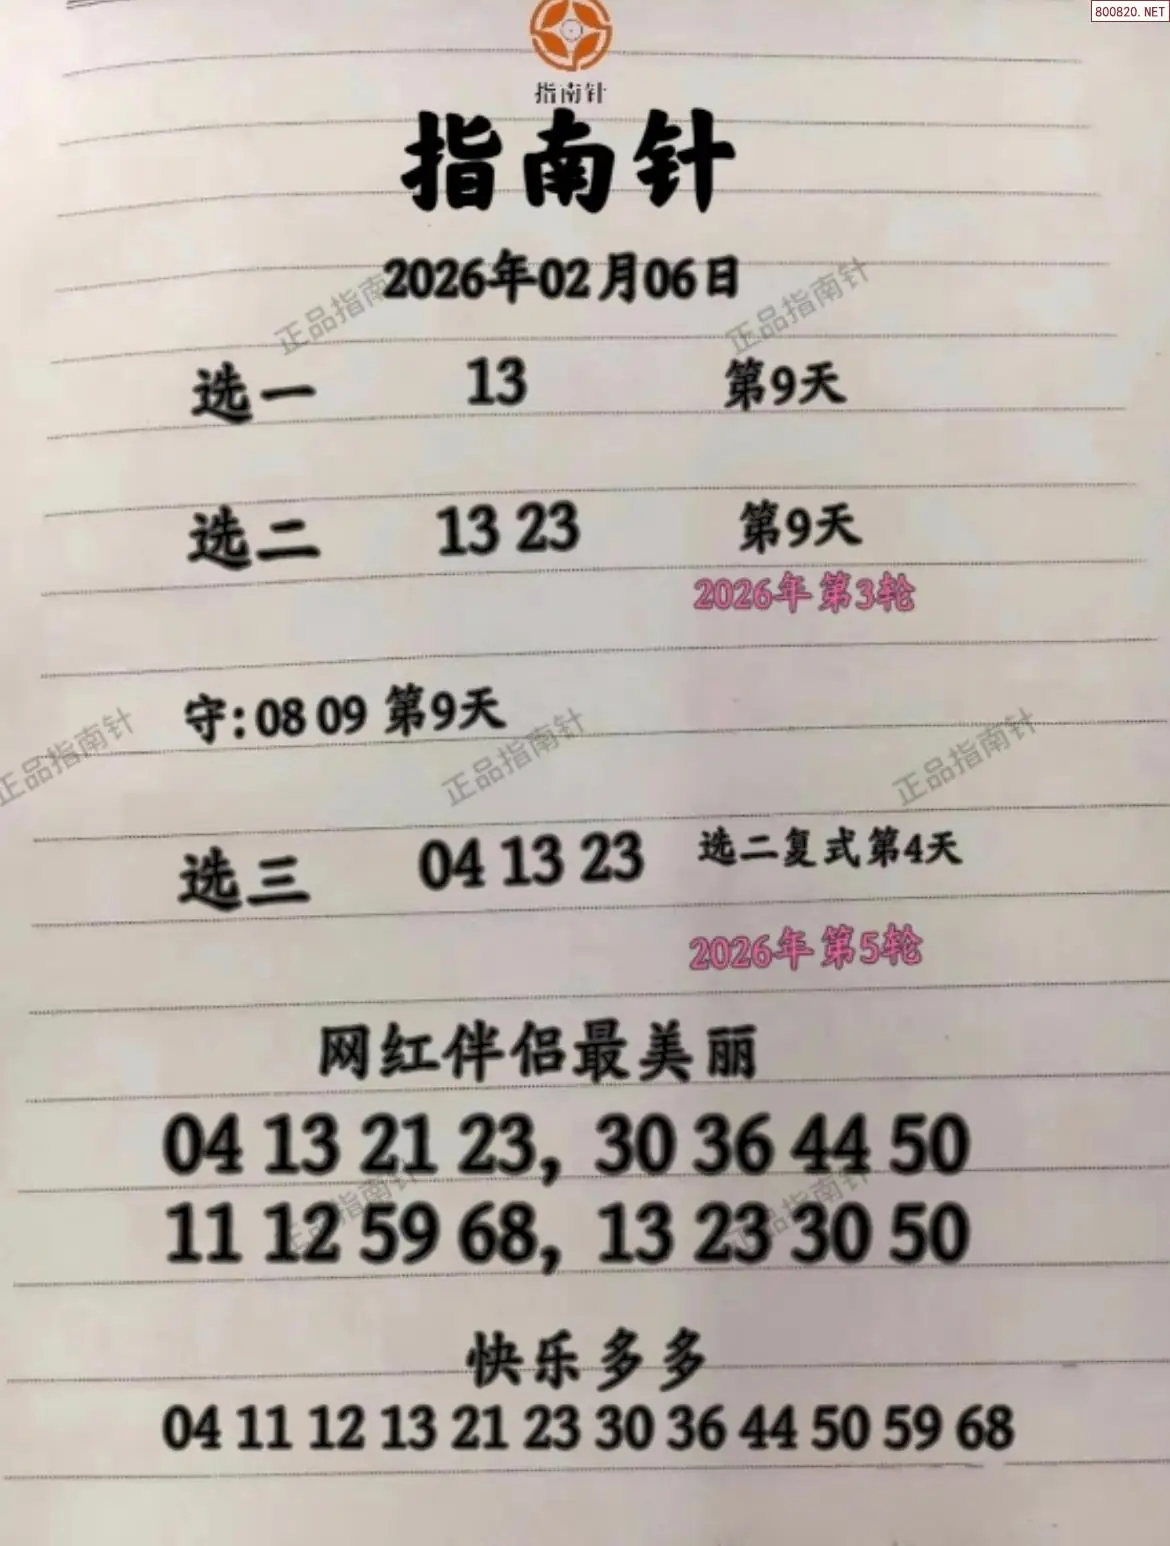 800820.NET
指南针
指南针
2026年02月06日
正品指南针 正品指南针
选一 13 第9天
选二 13 23 第9天
2026年第3轮
守:08 09 第9天
正品指南针 正品指南针 正品指南针
选三 04 13 23 选二复式第4天
2026年第5轮
网红伴侣最美丽
04 13 21 23, 30 36 44 50
正品指南针 正品指南针
11 12 59 68, 13 23 30 50
快乐多多
04 11 12 13 21 23 30 36 44 50 59 68